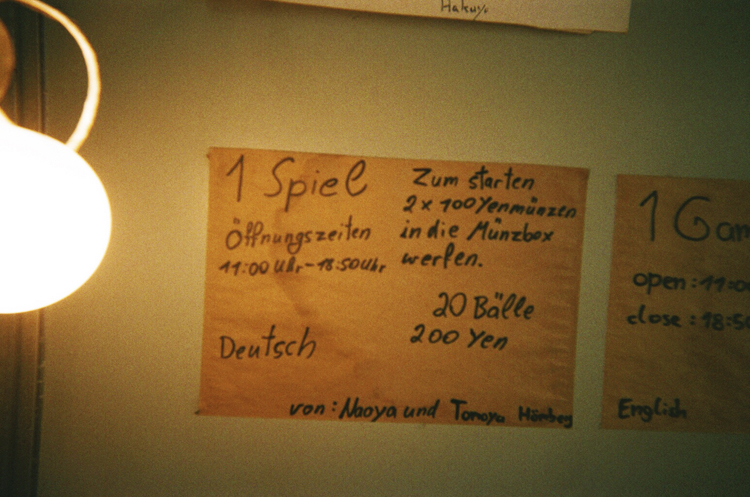 Hakuyo
1 Spiel
Öffnungszeiten
11:00 Uhr - 18:50 Uhr
Deutsch
Zum starten
2 x 100 Yenmünzen
in die Münzbox
werfen.
20 Bälle
200 Yen
von: Naoya und Tomoya
1 Gam
open: 11:00
close: 18:50
English